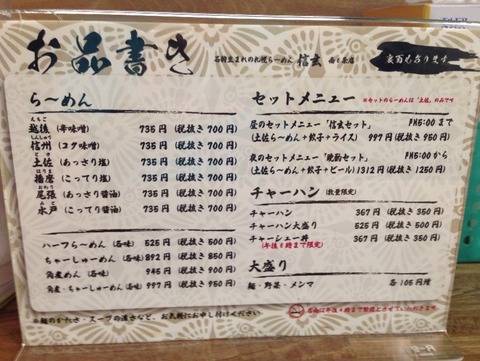 お品書き
石狩生まれの札幌らーめん 信玄 南6条店
裏面もあります
らーめん
えちご
越後 (辛味噌) 735円 (税抜き 700円)
しんしゅう
信州 (コク味噌) 735円 (税抜き 700円)
とさ
土佐 (あっさり塩) 735円 (税抜き 700円)
はりま
播磨 (こってり塩) 735円 (税抜き 700円)
おわり
尾張 (あっさり醤油) 735円 (税抜き 700円)
みと
水戸 (こってり醤油) 735円 (税抜き 700円)
ハーフらーめん (各味) 525円 (税抜き 500円)
ちゃーしゅーめん (各味) 892円 (税抜き 850円)
角煮めん (各味) 945円 (税抜き 900円)
角煮・ちゃーしゅーめん (各味) 997円 (税抜き 950円)
※麺のかたさ、スープの濃さなど、お気軽にお申し付けください
セットメニュー ※セットのらーめんは「土佐」のみです
昼のセットメニュー「信玄セット」 PM5:00まで
(土佐らーめん+餃子+ライス) 997円 (税抜き 950円)
夜のセットメニュー「晩酌セット」 PM5:00から
(土佐らーめん+餃子+ビール) 1312円 (税抜き 1250円)
チャーハン (数量限定)
チャーハン 367円 (税抜き 350円)
チャーハン大盛り 525円 (税抜き 500円)
チャーシュー丼 367円 (税抜き 350円)
(午後6時まで限定)
大盛り
麺・野菜・メンマ 各105円増
当店は午後6時まで禁煙とさせていただきます